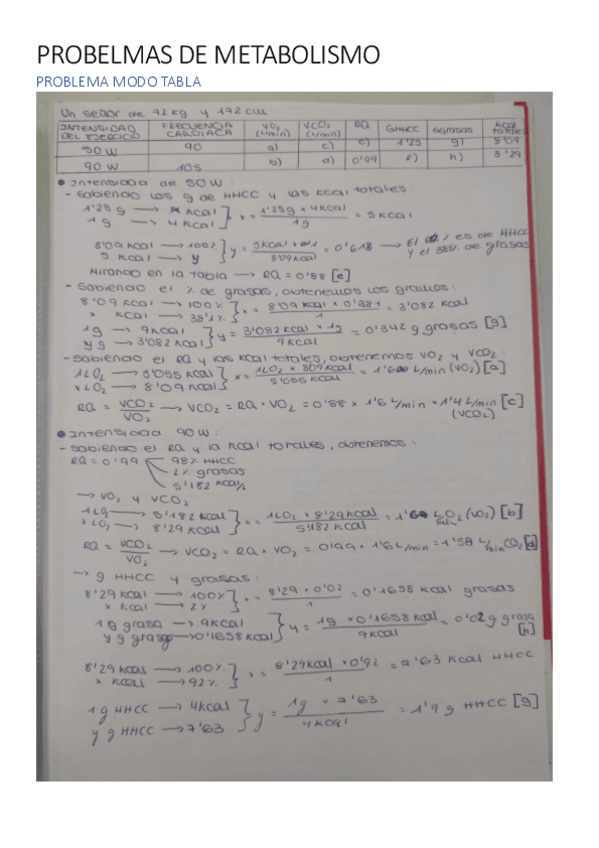 PROBELMAS DE METABOLISMO
PROBLEMA MODO TABLA
Un señor de 72 kg y 172 cm:
INTENSIDAD DEL EJERCICIO FRECUENCIA CARDIACA VO2 (L/min) VCO2 (L/min) RQ GHHCC GGRASAS kcal TOTALES
50 W 90 a) c) e) 1'25 g) 8'09
90 W 105 b) d) 0'99 f) h) 8'29
● Intensidad de 50W:
- Sabiendo los g de HHCC y las kcal totales:
1'25 g → x kcal } x = 1'25g x 4kcal / 1g = 5 kcal
1 g → 4 kcal
8'09 kcal → 100% } y = / 8'09kcal = 0'618 → El % es de HHCC
5 kcal → y y el 38% de grasas
Mirando en la tabla → RQ = 0'88 [e]
- Sabiendo el % de grasas, obtenemos los gramos:
8'09 kcal → 100% } x = 8'09 kcal x 0'381 / 1 = 3'082 kcal
x kcal → 38'1%
1g → 9kcal } y = 3'082kcal x 1g / 9kcal = 0'342 g grasas [g]
y g → 3'082kcal
- Sabiendo el RQ y las kcal totales, obtenemos VO2 y VCO2:
1LO2 → 5'055 kcal } x = 1LO2 x 8'09kcal / 5'055 kcal = L/min (VO2) [a]
x LO2 → 8'09 kcal
RQ = VCO2 / VO2 → VCO2 = RQ · VO2 = 0'88 x 1'6 L/min = 1'4 L/min [c]
(VCO2)
● Intensidad 90W:
- Sabiendo el RQ y la kcal totales, obtenemos:
RQ = 0'99 98% HHCC
2% grasas
5'182 kcal/L
→ VO2 y VCO2
1LO2 → 5'182 kcal } x = 1LO2 x 8'29kcal / 5'182 kcal = LO2 (VO2) [b]
x LO2 → 8'29 kcal
RQ = VCO2 / VO2 → VCO2 = RQ · VO2 = 0'99 x 1'6 L/min = 1'58 L/min CO2 [d]
→ g HHCC y grasas:
8'29 kcal → 100% } x = 8'29 x 0'02 / 1 = 0'1658 kcal grasas
x kcal → 2%
1g grasa → 9kcal } y = 1g x 0'1658 kcal / 9kcal = 0'02g grasa
y g grasa → 0'1658kcal [h]
8'29 kcal → 100% } x = 8'29kcal x 0'92 / 1 = 7'63 kcal HHCC
x kcal → 92%
1g HHCC → 4kcal } y = 1g x 7'63 / 4kcal = 1'9 g HHCC [g]
y g HHCC → 7'63